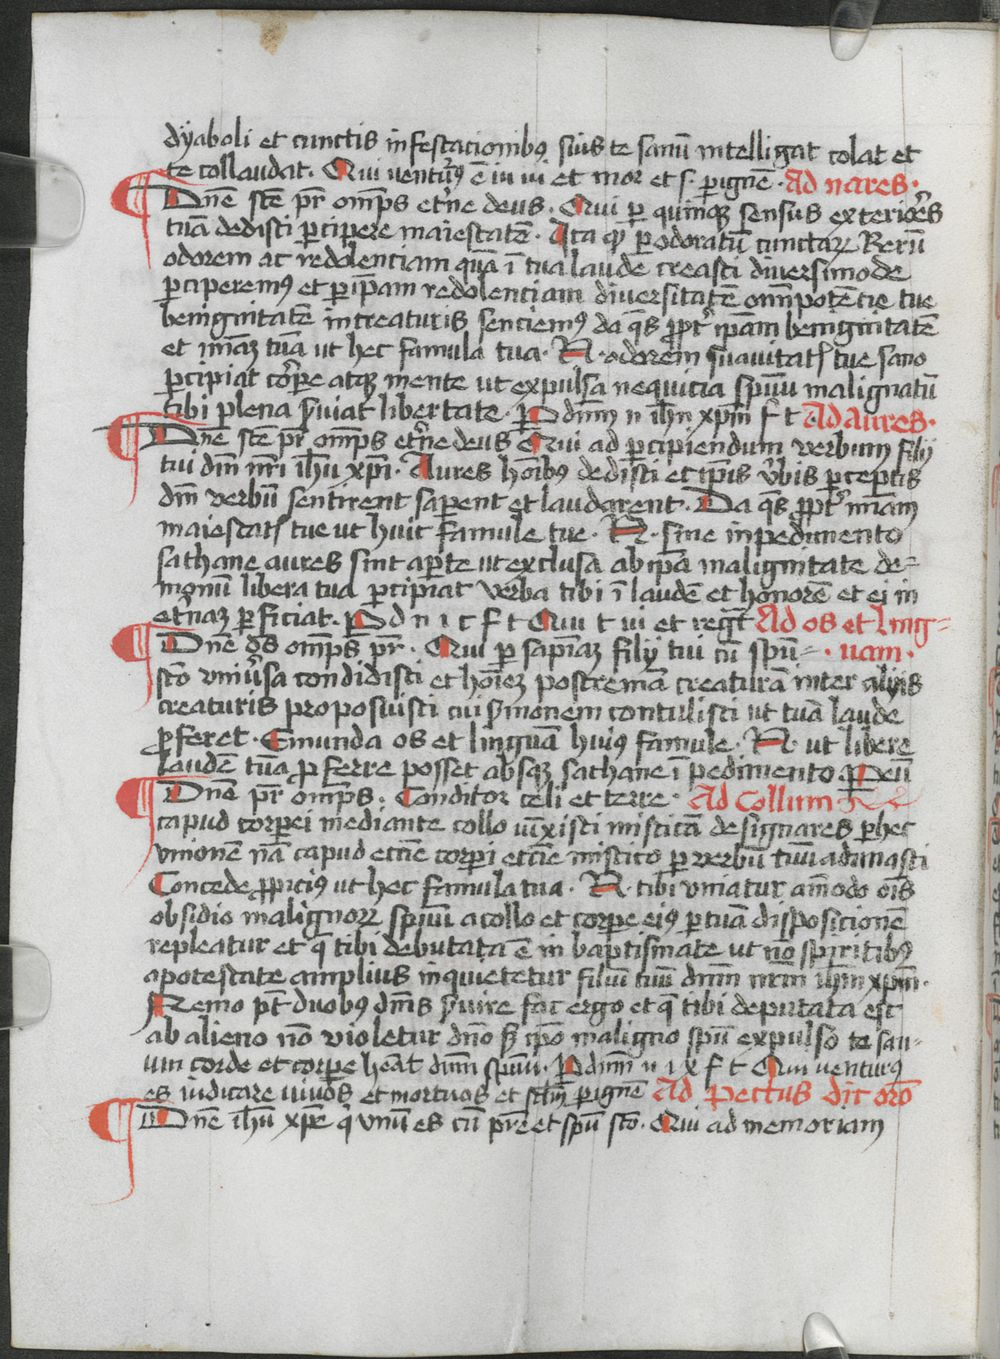 dyaboli et cunctis infestacionibꝫ suis te sanū intelligat colat et
te collaudat. Qui ventur᷒ ē iu ui et mor et s. p ignē. Ad nares.
Dn̄e sc̄e pr̄ omp̄s et'ne deus. Qui p quinqꝫ sensus exteriores
tuā dedisti pcipere maiestatē. Ita qꝫ p odoratū cunctaꝝ Rerū
odorem ac redolenciam quā ī tua laude creasti diversimode
pciperemꝰ et p ip̄am redolenciam diversitatē omp̄otēcie tue
benignitatē in creaturis senciemꝰ da qs̄ ppt' ip̄am benignitatē
et mīaꝫ tuā ut hec famula tua. N. odorem suavitatꝭ tue sano
pcipiat corpe atqꝫ mente ut expulsa nequicia spūū malignātū
tibi plena s'uiat libertate. P dnm̄ n ih̄m xp̄m f t Ad aures.
Dn̄e sc̄e pr̄ omp̄s et'ne deus Qui ad pcipiendum verbum filij
tui dn̄i nr̄i ih̄u xp̄i. Aures ho͞ibꝫ dedisti et ip̄is v'bis pceptis
dn̄i verbū sentirent saperent et laudarent. Da qs̄ ppt' mīam
maiestatꝭ tue ut huic famule tue. N. sine inpedimento
sathane aures sint apte ut exclusa ab ip̄a malignitate de=
monū libera tua pcipiat verba tibi ī laudē et honorē et ei in
et'naꝫ pficiat. P d n i c f t Qui t ui et regt̄ Ad os et ling=
Dn̄e ds̄ omp̄s pr̄. Qui p sapīaꝫ filij tui cū spū= . uam.
sc̄o vniu'sa condidisti et ho͞ieꝫ postremā creaturā inter alijs
creaturis proposuisti cui s'monem contulisti ut tuā laudē
pferet. Emunda os et linguā huiꝰ famule. N. ut libere
laudē tuā pferre posset absqꝫ sathane īpedimento P eū
Dn̄e pr̄ omp̄s. Conditor celi et terre. Ad Collum
capud corpei mediante collo iūxisti misticā designares p hec
vnionē nā capud eccīe corpi eccīe mistico p verbū tuū adunasti
Concede ppiciꝰ ut hec famula tua. N. tibi vniatur amodo ois̄
obsidio malignoꝝ spūū a collo et corpe eiꝰ p tuā disposicionē
repleatur et q̄ tibi debutata ē in baptismate ut no͞ spiritibꝫ
a potestate amplius inquietetur filiū tuū dnm̄ nr̄m ih̄m xp̄m.
Nemo pt̄ duobꝫ dn̄is s'uire fac ergo et q̄ tibi deputata est
ab alieno no͞ violetur dn̄o sꝫ ip̄o maligno spū expulso te sau=
um corde et corpe heat̄ dnm̄ spūm. P dnm̄ n i x f t Qui venturꝰ
es iudicare vivos et mortuos et sclm̄ p ignē Ad Pectus dic oro͞
Dn̄e ih̄u xp̄e q' vnū es cū pr̄e et spū sc̄o. Qui ad memoriam